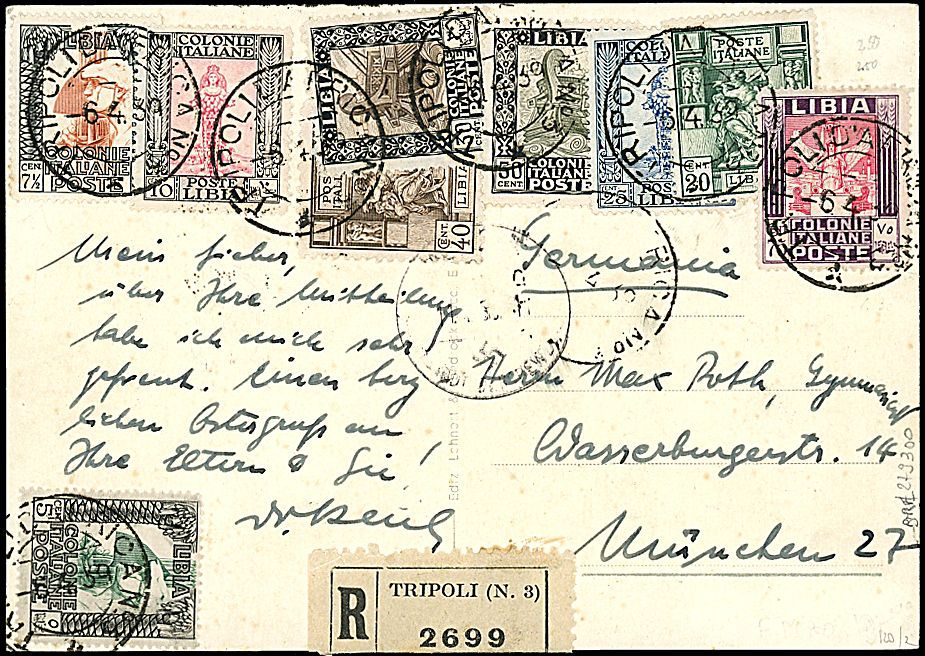 LIBIA
CENT 7½
COLONIE ITALIANE
POSTE
COLONIE ITALIANE
10
POSTE
LIBIA
LIBIA
30 CENT
COLONIE ITALIANE
POSTE
LIBIA
50 CENT
COLONIE ITALIANE
POSTE
25
LIBIA
POSTE ITALIANE
CENT 20
LIB
LIBIA
75
COLONIE ITALIANE
POSTE
LIBIA
CENT. 40
TRIPOLI D'AFRICA
Mein lieber,
über Ihre Mitteilung
habe ich mich sehr
gefreut. Einen herz
lichen Ostergruß an
Ihre Eltern & Sie!
Germania
Herrn Max Roth, Gymnasiast
Wasserburgerstr. 14
München 27
LIBIA
5 CENT
COLONIE ITALIANE
POSTE
R
TRIPOLI (N. 3)
2699
Ediz. Lehnert &
279300
250
120/2